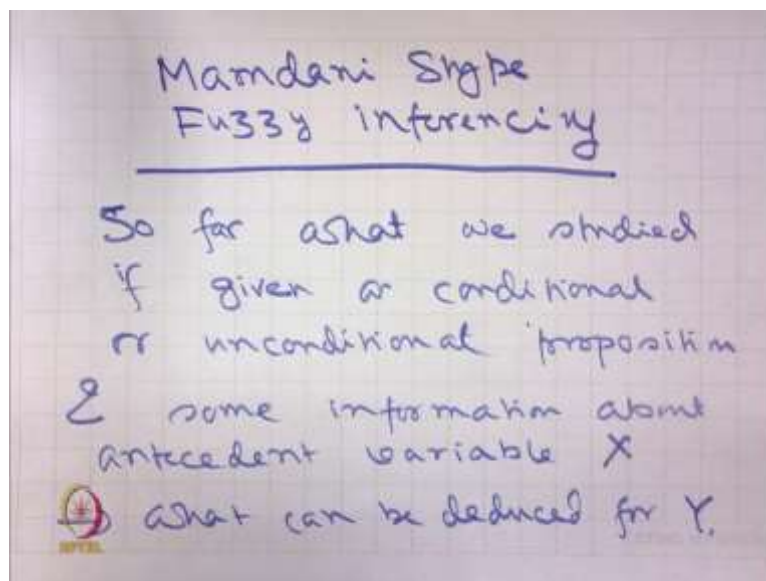 Mamdani Style
Fuzzy inferencing
So far what we studied
if given a conditional
or unconditional proposition
& some information about
antecedent variable X
what can be deduced for Y.
NPTEL